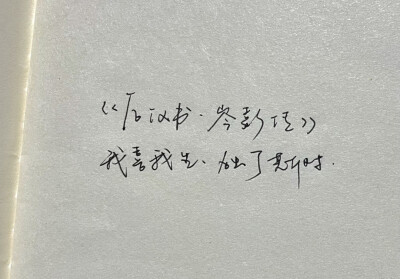 《后汉书·岑彭传》
我喜我生，独丁斯时.